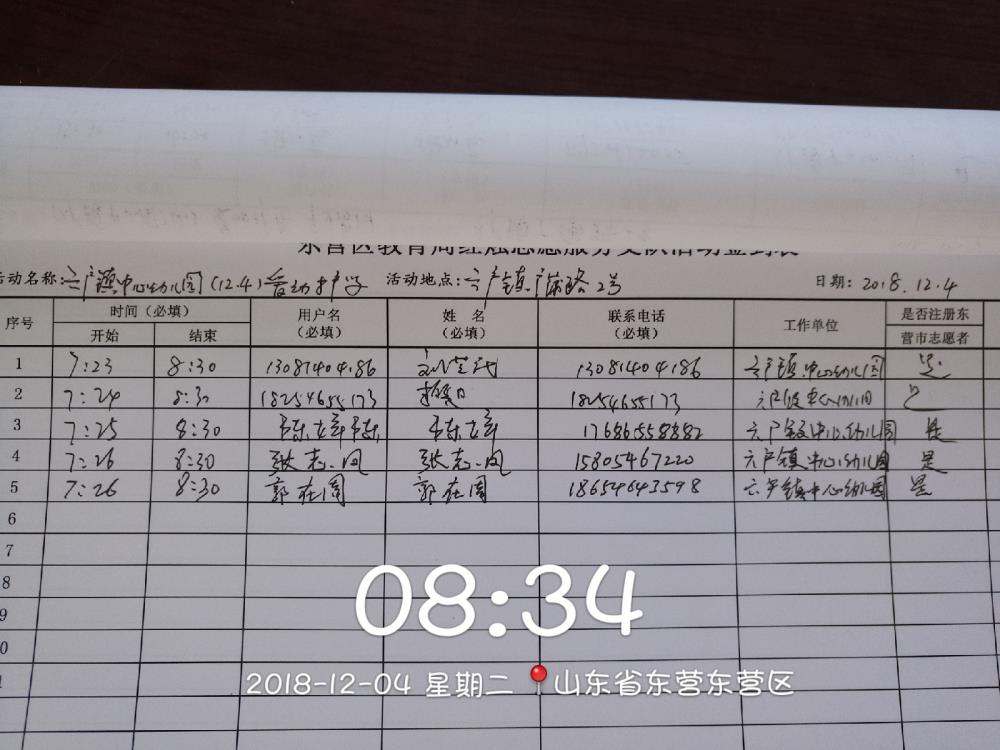 东营区教育局红烛志愿服务支队活动签到表
活动名称:六户镇中心幼儿园(12.4)善动护学 活动地点:六户镇广饶路2号 日期:2018.12.4
序号 时间(必填) 用户名(必填) 姓名(必填) 联系电话(必填) 工作单位 是否注册东营市志愿者
开始 结束
1 7:23 8:30 13081404186 13081404186 六户镇中心幼儿园 是
2 7:24 8:30 18254655173 18254655173 六户镇中心幼儿园
3 7:25 8:30 17686558882 六户镇中心幼儿园 是
4 7:26 8:30 张志凤 张志凤 15805467220 六户镇中心幼儿园 是
5 7:26 8:30 郭在周 郭在周 18654643598 六户镇中心幼儿园 是
6
7
8
9
0
08:34
2018-12-04 星期二 山东省东营东营区